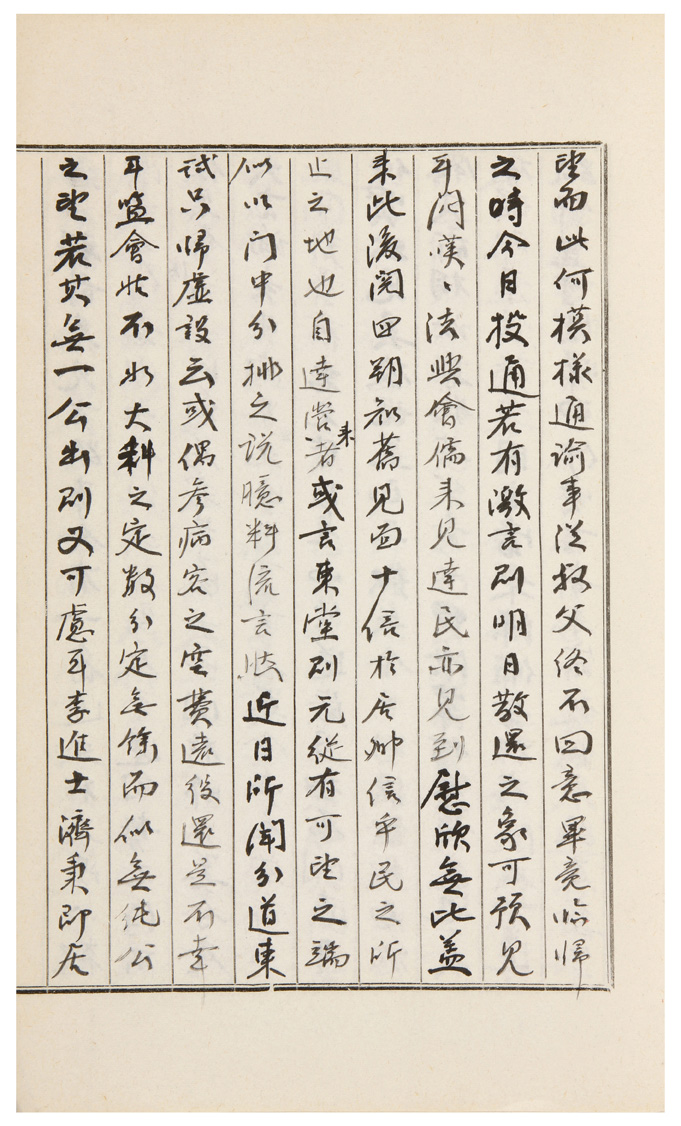 望而此何模樣通諭事從叔父終不回意畢竟臨歸
之時今日投通若有激言則明日散還之象可預見
耳悶嘆〻法興會儒來見達民亦見到慰欣無此蓋
來此後閱四朔知舊見面十倍於居鄉信乎民之所
止之地也自達營來者或言東堂則元從有可望之端
似以门中分排之說臆料流言然近日所聞分道東
試只歸虛設云或偶參病客之空費遠役還是不幸
耳監會姑不水大科之定散分定無餘而似無純公
之望若其無一公出則又可慮耳李進士濟秉即居